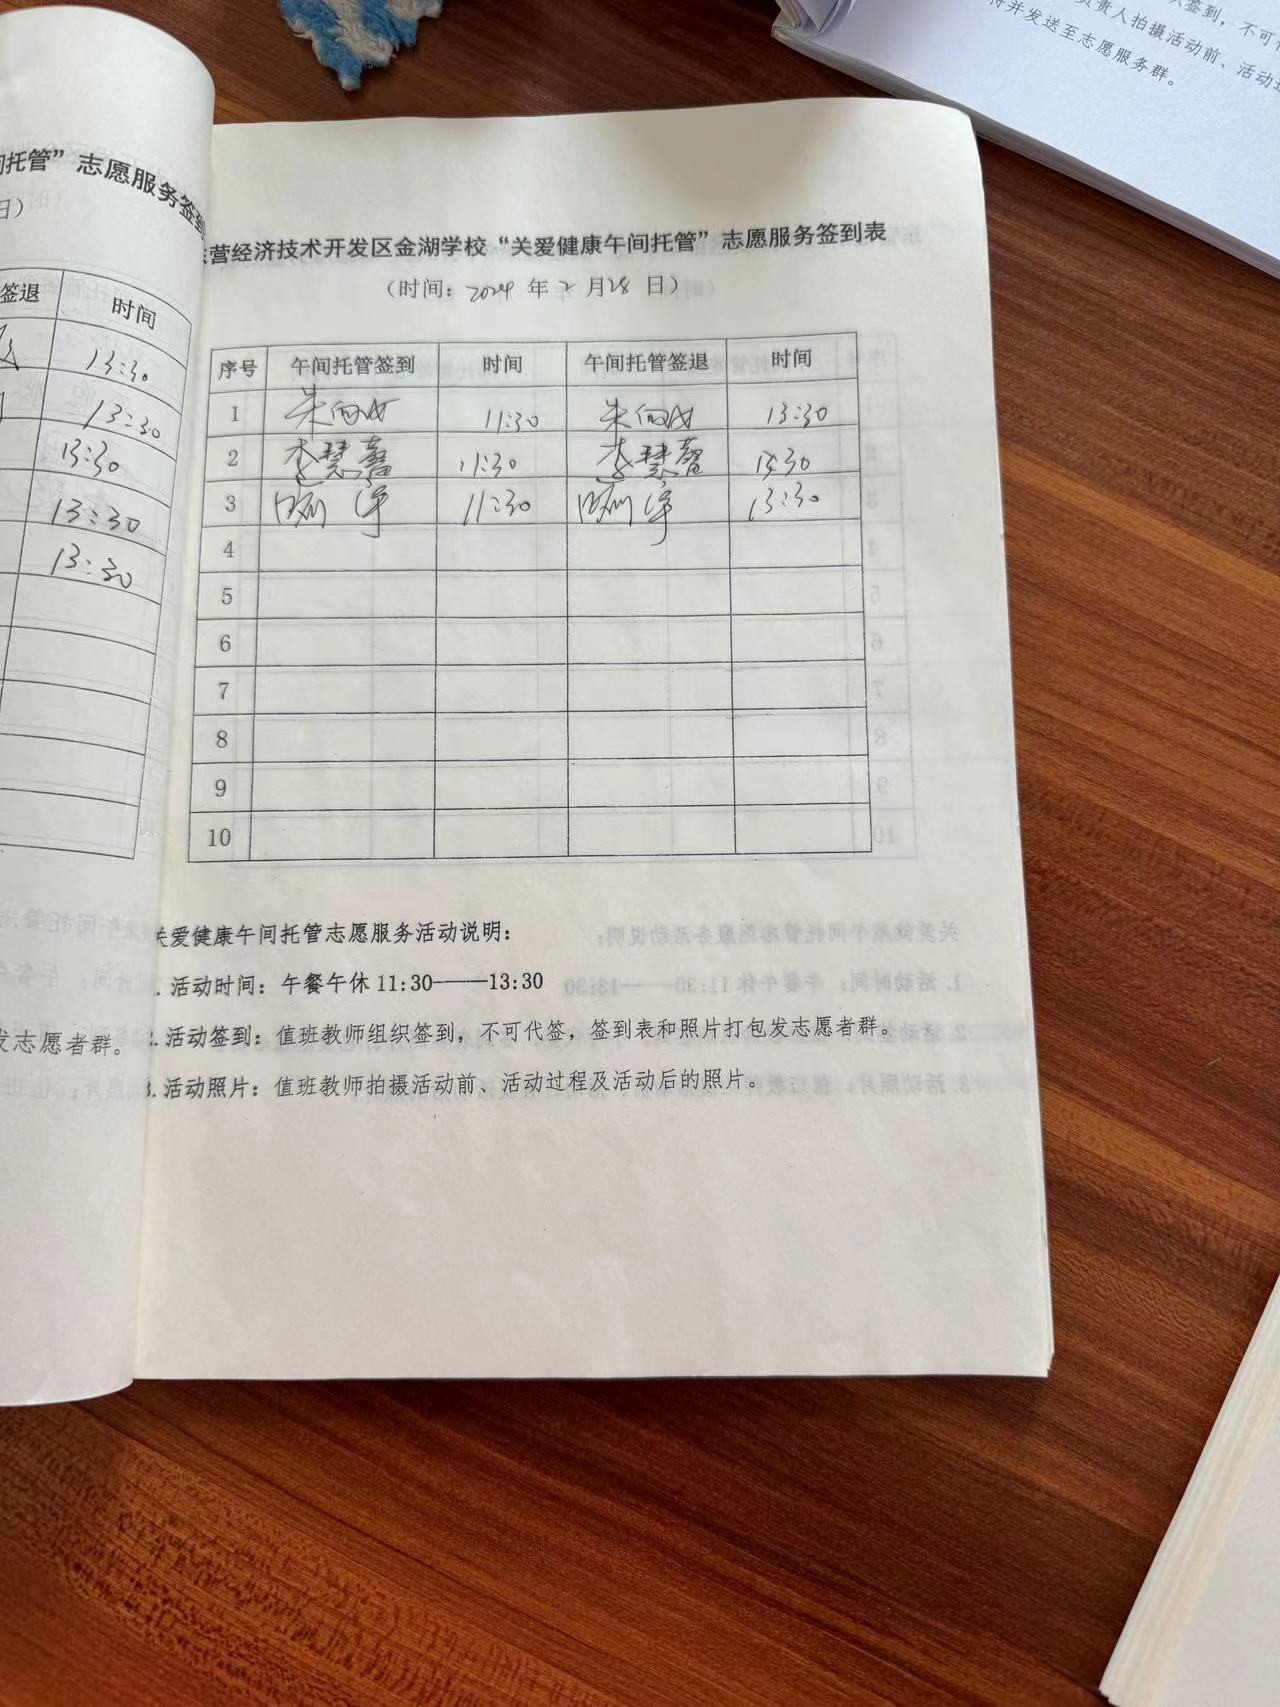 签到,不可代
责人拍摄活动前、活动过
并发送至志愿服务群。
间托管”志愿服务签到
日)
签退 时间
13:30
13:30
13:30
13:30
13:30
发志愿者群。
东营经济技术开发区金湖学校“关爱健康午间托管”志愿服务签到表
(时间: 2024 年 2 月 28 日)
序号 午间托管签到 时间 午间托管签退 时间
1 11:30 13:30
2 李慧馨 11:30 李慧馨 13:30
3 11:30 13:30
4
5
6
7
8
9
10
关爱健康午间托管志愿服务活动说明:
1.活动时间:午餐午休 11:30——13:30
2.活动签到:值班教师组织签到,不可代签,签到表和照片打包发志愿者群。
3.活动照片:值班教师拍摄活动前、活动过程及活动后的照片。